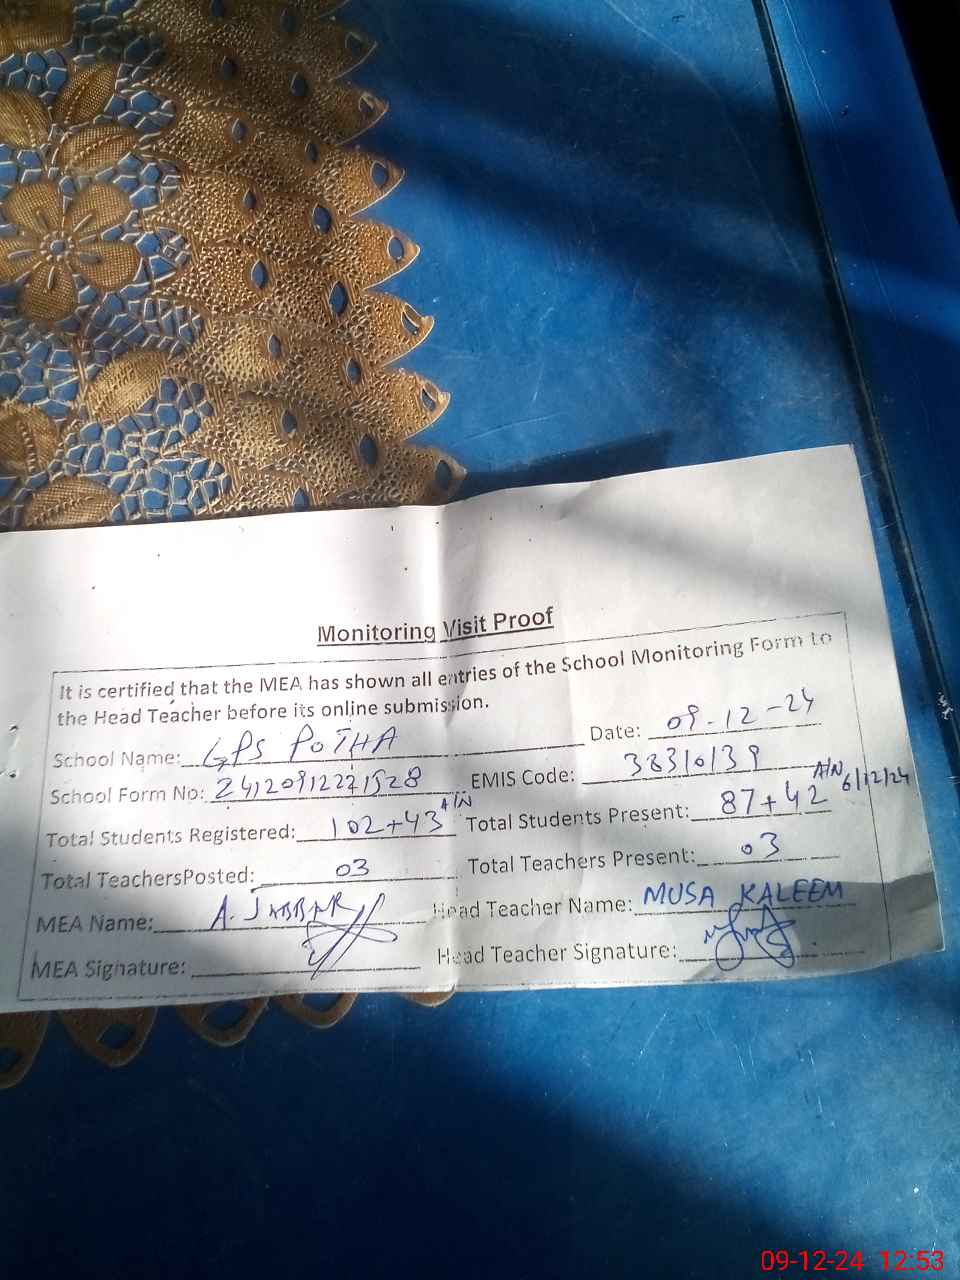 Monitoring Visit Proof
It is certified that the MEA has shown all entries of the School Monitoring Form to
the Head Teacher before its online submission.
School Name: GPS POTHA Date: 09-12-24
School Form No: 24120912271528 EMIS Code: 38310139
Total Students Registered: 102+43 A/N Total Students Present: 87+42 A/N 6/12/24
Total TeachersPosted: 03 Total Teachers Present: 03
MEA Name: A. JABBAR Head Teacher Name: MUSA KALEEM
MEA Signature: Head Teacher Signature:
09-12-24 12:53